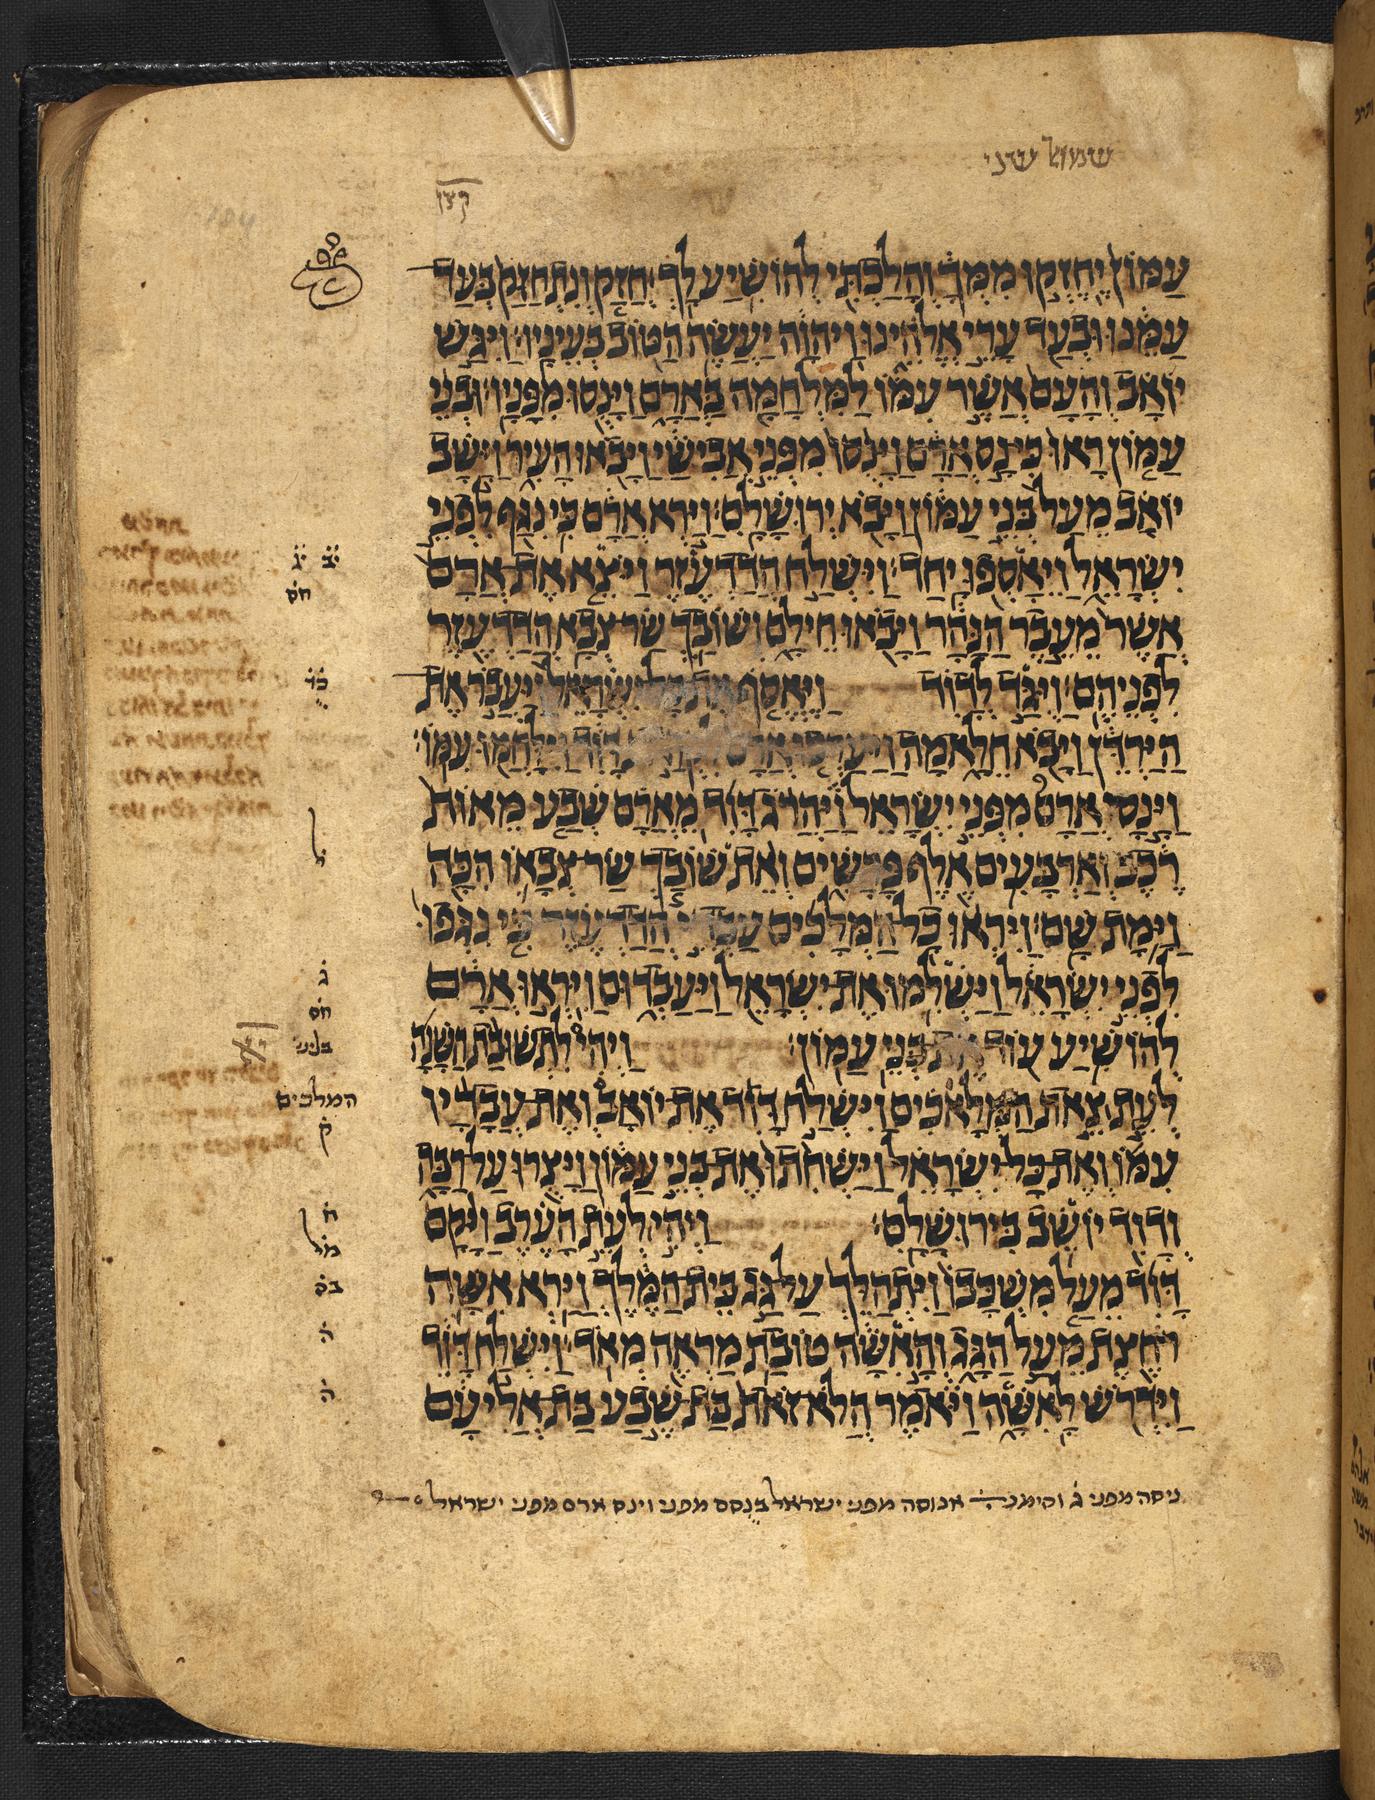 שמואל שני
קצן
עַמּוֹן יֶחֶזְקוּ מִמְּךָ וְהָלַכְתִּי לְהוֹשִׁיעַ לָךְ׃ חֲזַק וְנִתְחַזַּק בְּעַד
עַמֵּנוּ וּבְעַד עָרֵי אֱלֹהֵינוּ וַיהוָה יַעֲשֶׂה הַטּוֹב בְּעֵינָיו׃ וַיִּגַּשׁ
יוֹאָב וְהָעָם אֲשֶׁר עִמּוֹ לַמִּלְחָמָה בַּאֲרָם וַיָּנֻסוּ מִפָּנָיו׃ וּבְנֵי
עַמּוֹן רָאוּ כִּי נָס אֲרָם וַיָּנֻסוּ מִפְּנֵי אֲבִישַׁי וַיָּבֹאוּ הָעִיר וַיָּשָׁב
יוֹאָב מֵעַל בְּנֵי עַמּוֹן וַיָּבֹא יְרוּשָׁלִָם׃ וַיַּרְא אֲרָם כִּי נִגַּף לִפְנֵי
יִשְׂרָאֵל וַיֵּאָסְפוּ יָחַד׃ וַיִּשְׁלַח הֲדַדְעֶזֶר וַיֹּצֵא אֶת אֲרָם
אֲשֶׁר מֵעֵבֶר הַנָּהָר וַיָּבֹאוּ חֵילָם וְשׁוֹבַךְ שַׂר צְבָא הֲדַדְעֶזֶר
לִפְנֵיהֶם׃ וַיֻּגַּד לְדָוִד וַיֶּאֱסֹף אֶת כָּל יִשְׂרָאֵל וַיַּעֲבֹר אֶת
הַיַּרְדֵּן וַיָּבֹא חֵלָאמָה וַיַּעַרְכוּ אֲרָם דָּוִד וַיִּלָּחֲמוּ עִמּוֹ׃
וַיָּנָס אֲרָם מִפְּנֵי יִשְׂרָאֵל וַיַּהֲרֹג דָּוִד מֵאֲרָם שְׁבַע מֵאוֹת
רֶכֶב וְאַרְבָּעִים אֶלֶף פָּרָשִׁים וְאֵת שׁוֹבַךְ שַׂר צְבָאוֹ הִכָּה
וַיָּמָת שָׁם׃ וַיִּרְאוּ כָל הַמְּלָכִים עַבְדֵי הֲדַדְעֶזֶר כִּי נִגְּפוּ
לִפְנֵי יִשְׂרָאֵל וַיַּשְׁלִמוּ אֶת יִשְׂרָאֵל וַיַּעַבְדוּם וַיִּרְאוּ אֲרָם
לְהוֹשִׁיעַ עוֹד אֶת בְּנֵי עַמּוֹן׃ וַיְהִי לִתְשׁוּבַת הַשָּׁנָה
לְעֵת צֵאת הַמְּלָאכִים וַיִּשְׁלַח דָּוִד אֶת יוֹאָב וְאֶת עֲבָדָיו
עִמּוֹ וְאֶת כָּל יִשְׂרָאֵל וַיַּשְׁחִתוּ אֶת בְּנֵי עַמּוֹן וַיָּצֻרוּ עַל רַבָּה
וְדָוִד יוֹשֵׁב בִּירוּשָׁלִָם׃ וַיְהִי לְעֵת הָעֶרֶב וַיָּקָם
דָּוִד מֵעַל מִשְׁכָּבוֹ וַיִּתְהַלֵּךְ עַל גַּג בֵּית הַמֶּלֶךְ וַיַּרְא אִשָּׁה
רֹחֶצֶת מֵעַל הַגָּג וְהָאִשָּׁה טוֹבַת מַרְאֶה מְאֹד׃ וַיִּשְׁלַח דָּוִד
וַיִּדְרֹשׁ לָאִשָּׁה וַיֹּאמֶר הֲלֹא זֹאת בַּת שֶׁבַע בַּת אֱלִיעָם
יב יג
חס
כד
ל
ג
חס
בליש
המלכים
ק
ח
מל
בס
ה
ה
ניסה מפני ג וסימניה אנוסה מפני ישראל בנסם מפני וינס ארם מפני ישראל